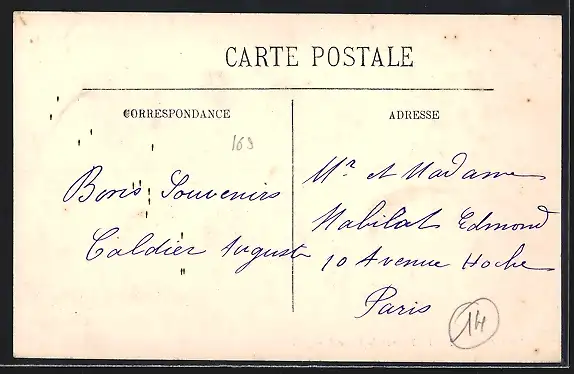 CARTE POSTALE
CORRESPONDANCE
ADRESSE
163
Bons Souvenirs
Caldier Auguste
Mr. et Madame
Mabilat Edmond
10 Avenue Hoche
Paris
14